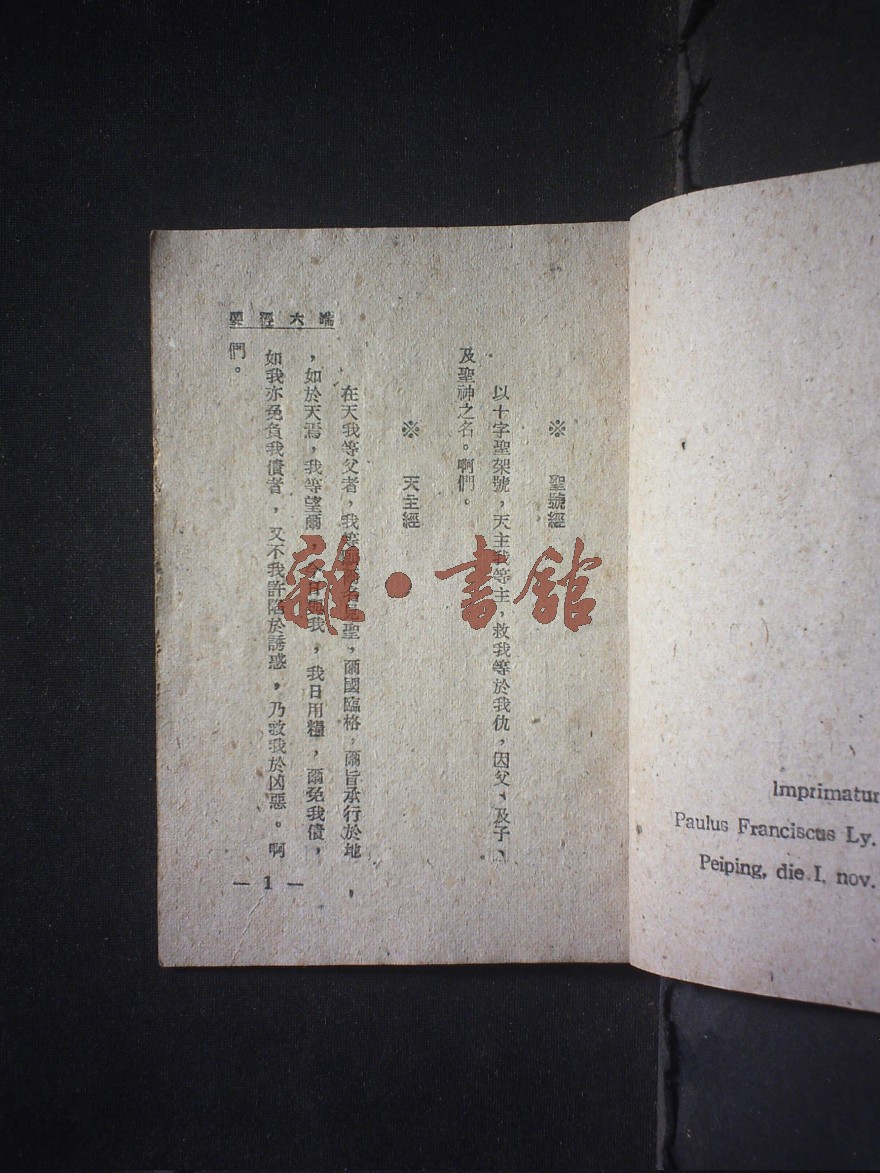 Imprimatur
Paulus Franciscus Ly.
Peiping, die I. nov.
※ 聖號經
以十字聖架號，天主我等主，救我等於我仇，因父、及子、
及聖神之名。啊們。
※ 天主經
在天我等父者，我等願爾名見聖，爾國臨格，爾旨承行於地，
，如於天焉，我等望爾，今日與我，我日用糧，爾免我債，
如我亦免負我債者，又不我許陷於誘惑，乃救我於凶惡。啊
們。
要經六端
— 1 —
雜·書館